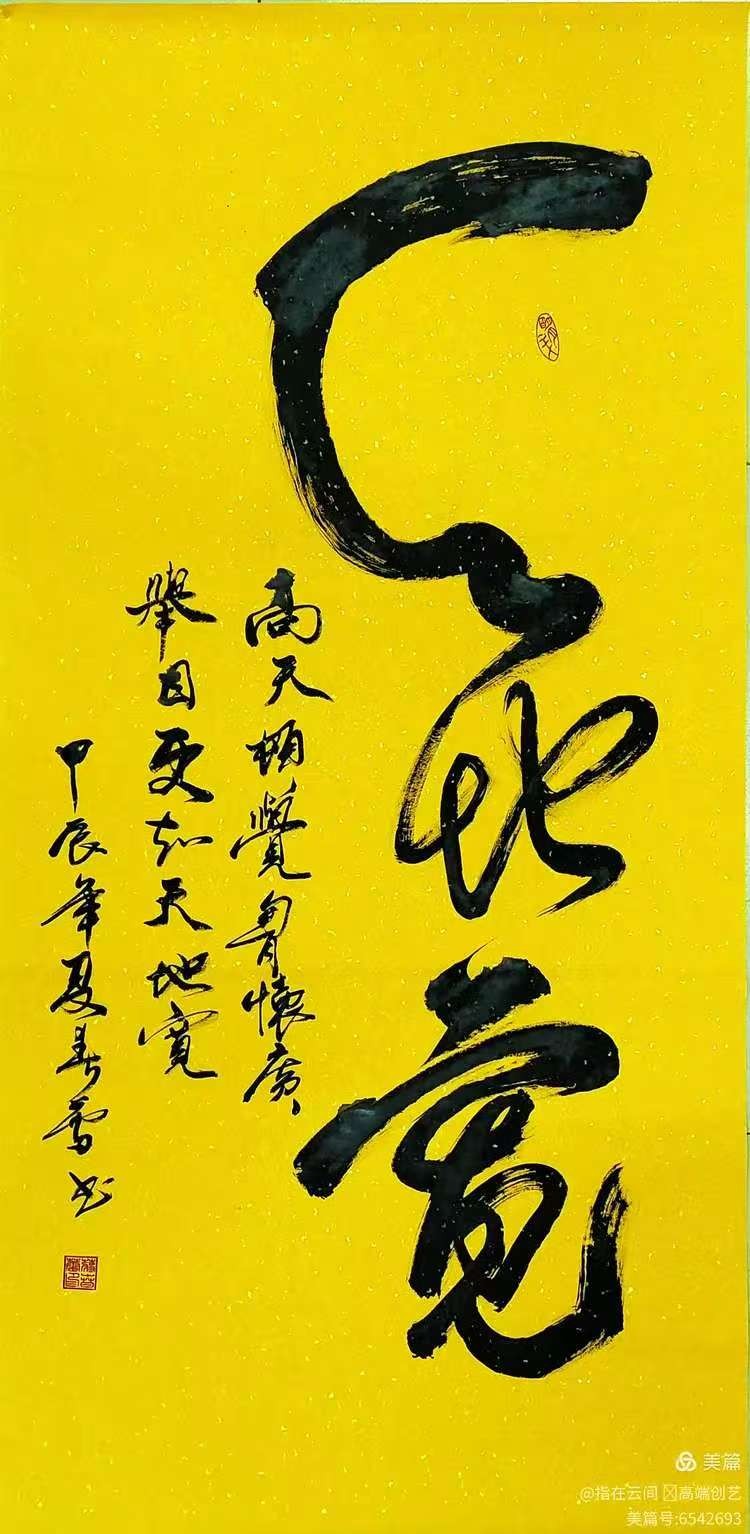 天地寬
高天頓覺胷懷廣
舉目更知天地寬
甲辰年夏春雪书
美篇
@指在云间 高端创艺
美篇号:6542693